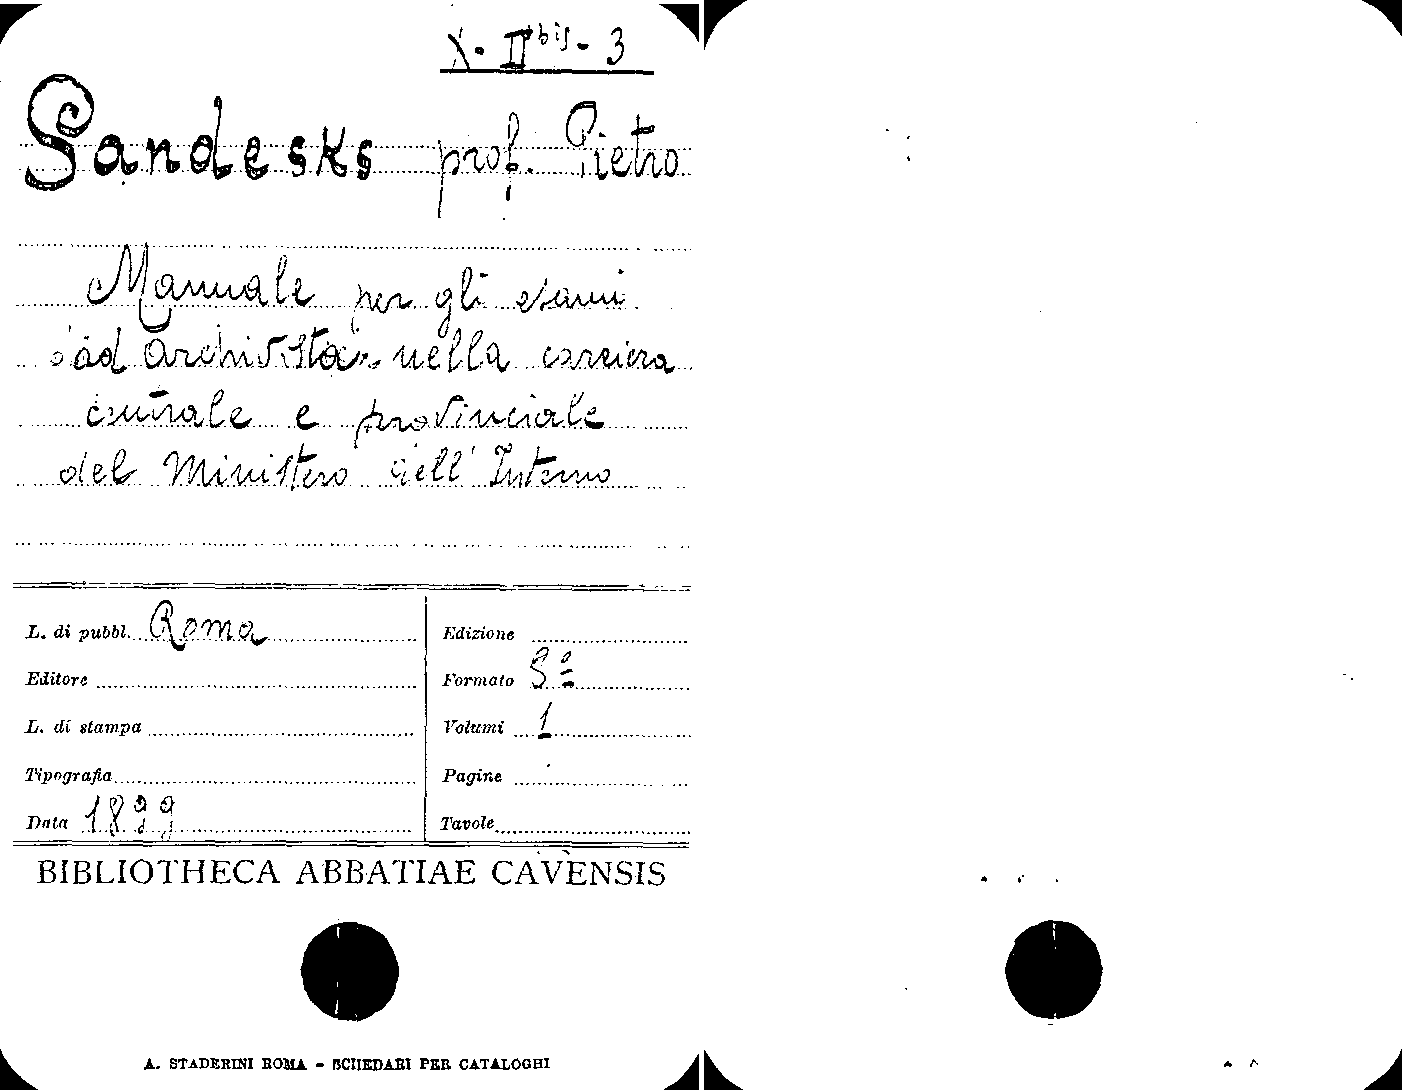 X - II bis - 3
Sandesks prof. Pietro
Manuale per gli esami
ad archivista nella carriera
centrale e provinciale
del Ministero dell'Interno
L. di pubbl. Roma
Editore
L. di stampa
Tipografia
Data 1899
Edizione
Formato 8º
Volumi 1
Pagine
Tavole
BIBLIOTHECA ABBATIAE CAVENSIS
A. STADERINI ROMA - SCHEDARI PER CATALOGHI